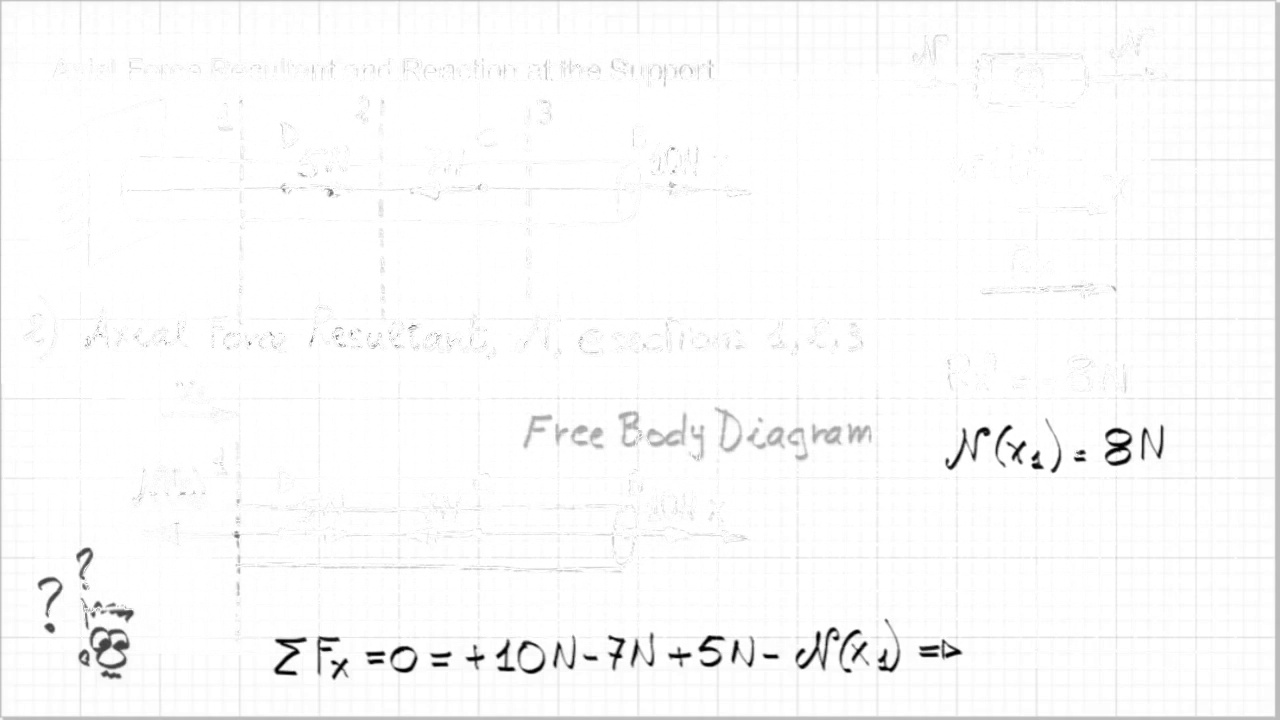 Axial Force Resultant and Reaction at the Support
N N
1 2 3
D C B
5N 7N 10N x
2) Axial Force Resultant, N, @ sections 1, 2, 3
Rx = -8N
Free Body Diagram
N(x₁) = 8N
N(x₁) 1 D 5N 7N C B 10N x
? ?
ΣFx = 0 = +10N - 7N + 5N - N(x₁) =>